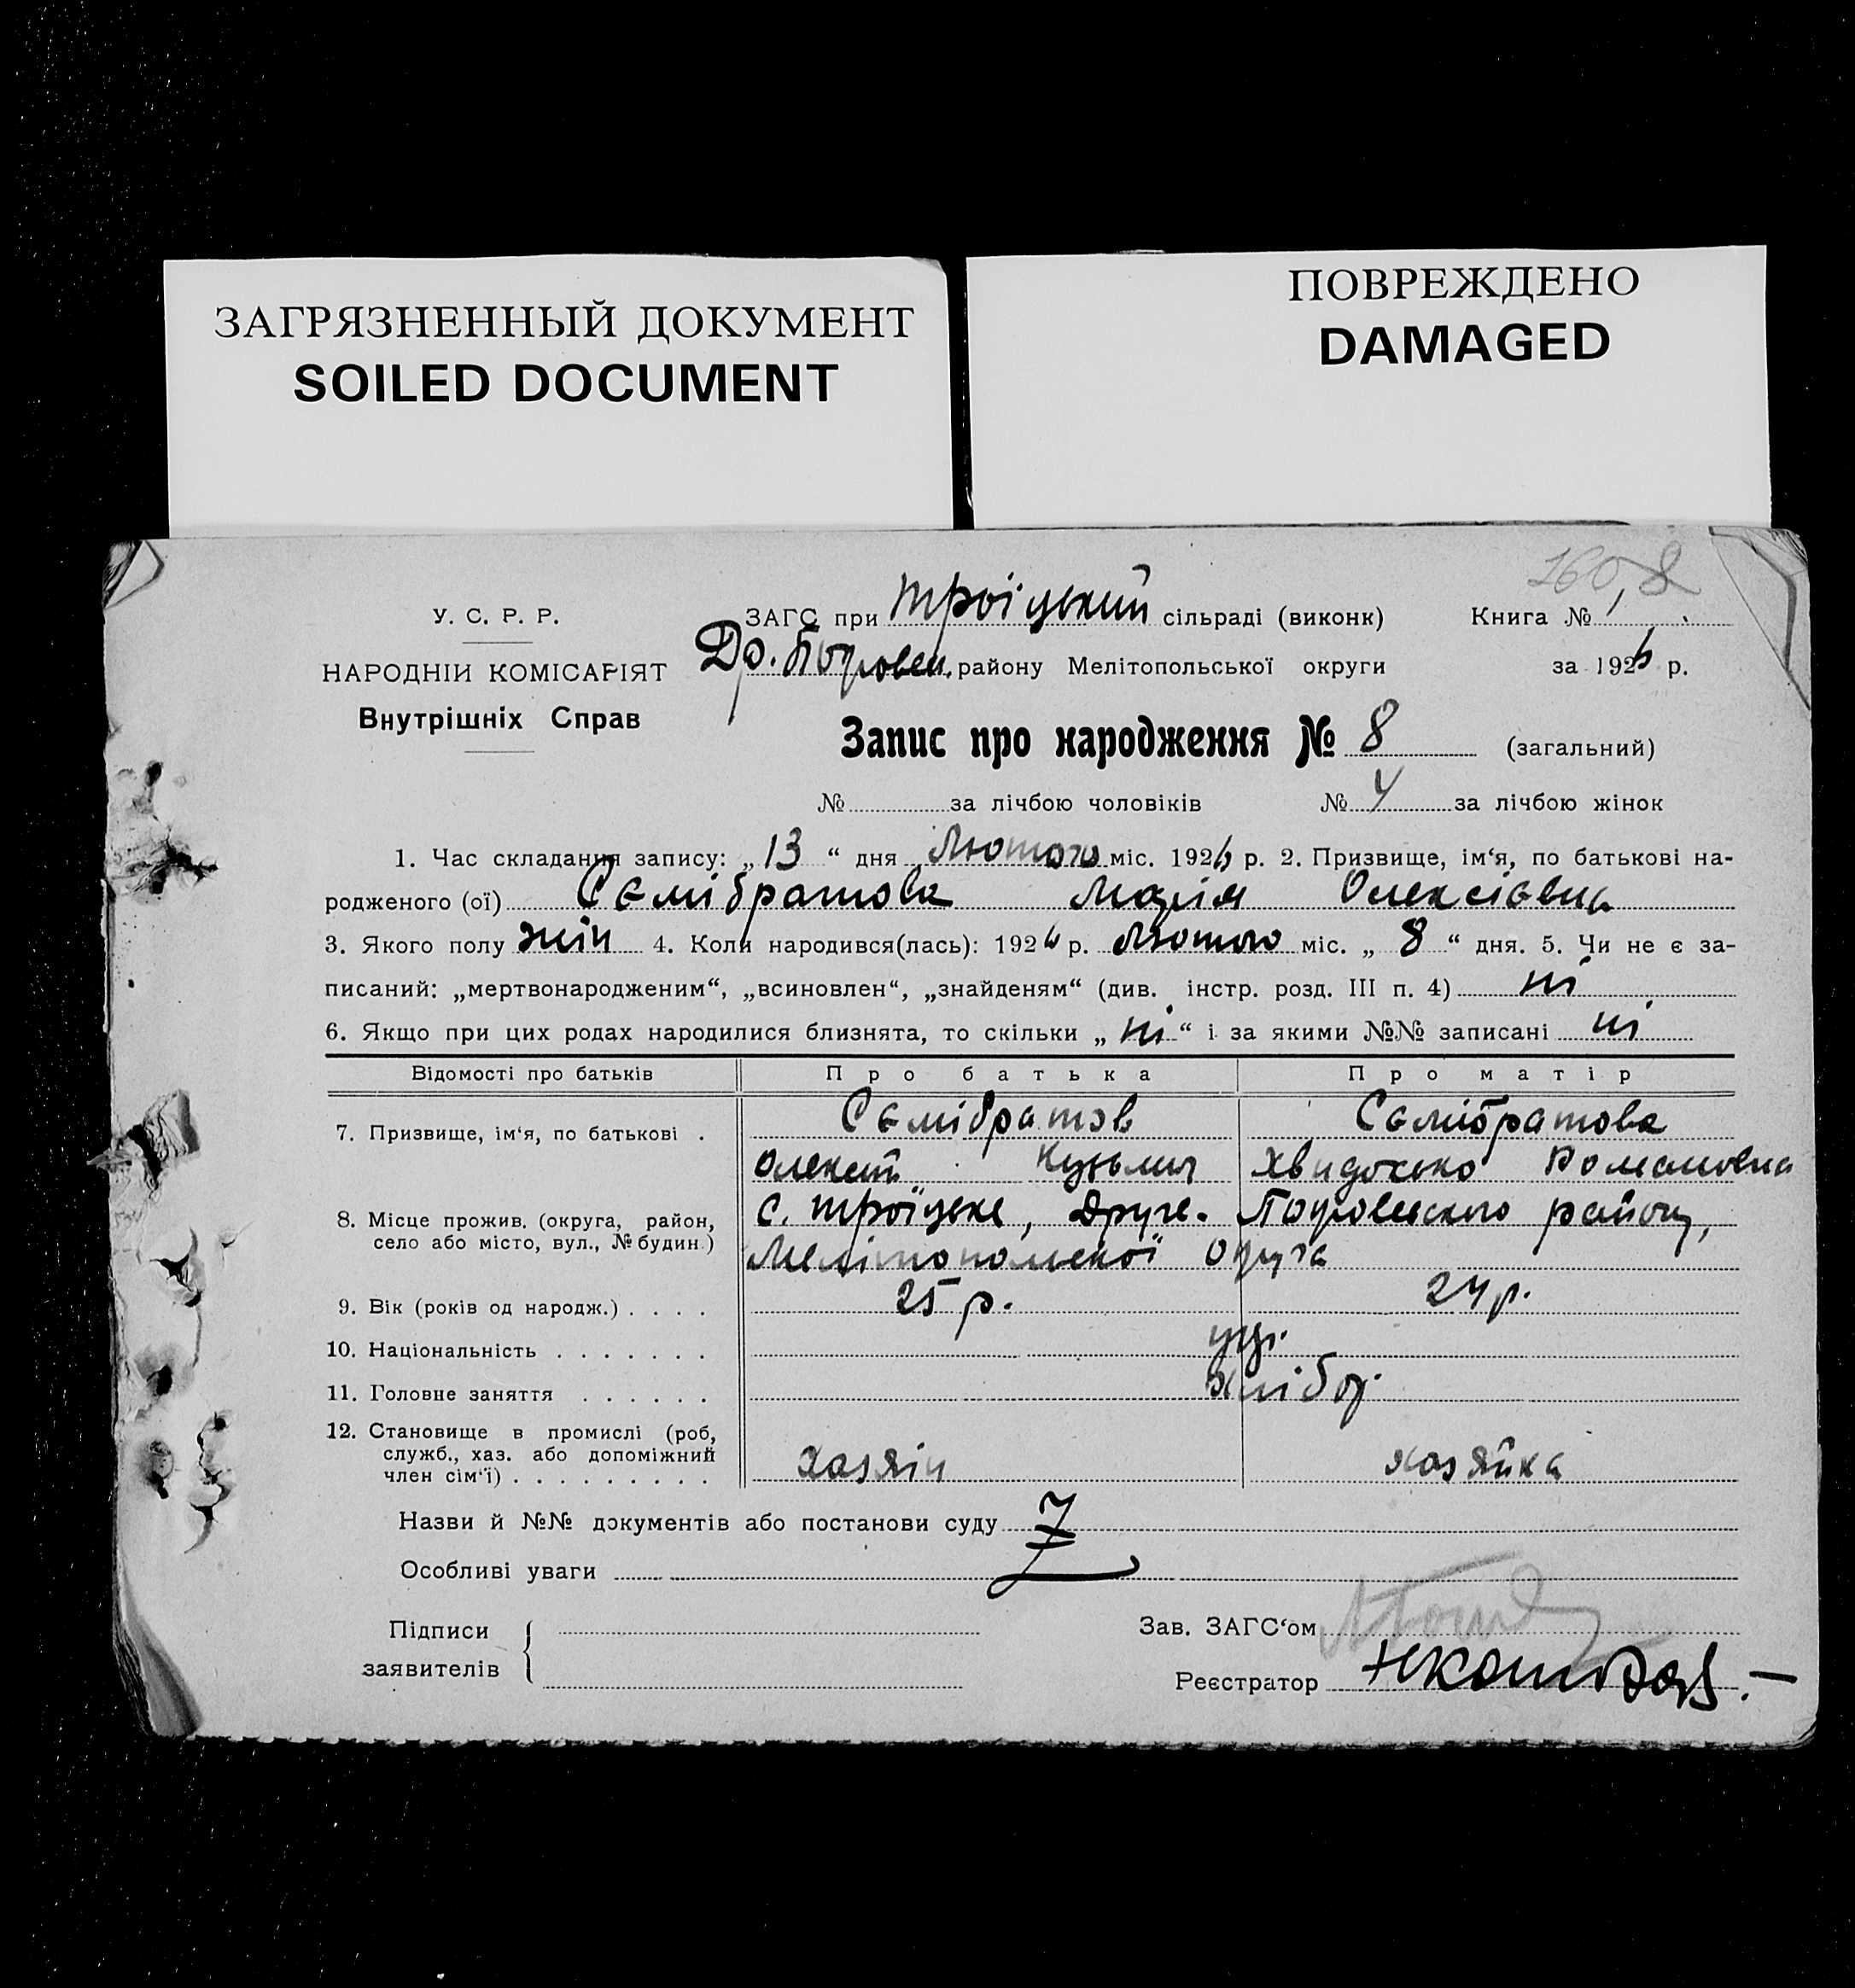 ЗАГРЯЗНЕННЫЙ ДОКУМЕНТ
SOILED DOCUMENT
ПОВРЕЖДЕНО
DAMAGED
У. С. Р. Р.
НАРОДНІЙ КОМІСАРІЯТ
Внутрішніх Справ
ЗАГС при Троіцький сільраді (виконк) Книга № 1
району Мелітопольської округи за 1926 р.
Запис про народження № 8 (загальний)
№ за лічбою чоловіків № 4 за лічбою жінок
1. Час складання запису: „ 13 “ дня Лютого міс. 1926 р. 2. Призвище, ім‘я, по батькові на-
родженого (ої) Семібратова Марія Олексієвна
3. Якого полу жін 4. Коли народився(лась): 1926 р. Лютого міс. „ 8 “ дня. 5. Чи не є за-
писаний: „мертвонародженим“, „всиновлен“, „знайденям“ (див. інстр. розд. III п. 4) ні
6. Якщо при цих родах народилися близнята, то скільки „ ні “ і за якими №№ записані ні
Відомості про батьків Про батька Про матір
7. Призвище, ім‘я, по батькові . Семібратов Семібратова
Олексій Кузьмич Романовна
8. Місце прожив. (округа, район, село або місто, вул., № будин.) с. Троїцьке, Друге-Покровського району,
Мелітопольскої Округа
9. Вік (років од народж.) . . . . 25 р. 24 р.
10. Національність . . . . . . . укр.
11. Головне заняття . . . . . . хлібор.
12. Становище в промислі (роб,
служб., хаз. або допоміжний
член сім‘ї) . . . . . . . . . хазяін хазяйка
Назви й №№ документів або постанови суду
Особливі уваги
Підписи
заявителів
Зав. ЗАГС‘ом
Реєстратор